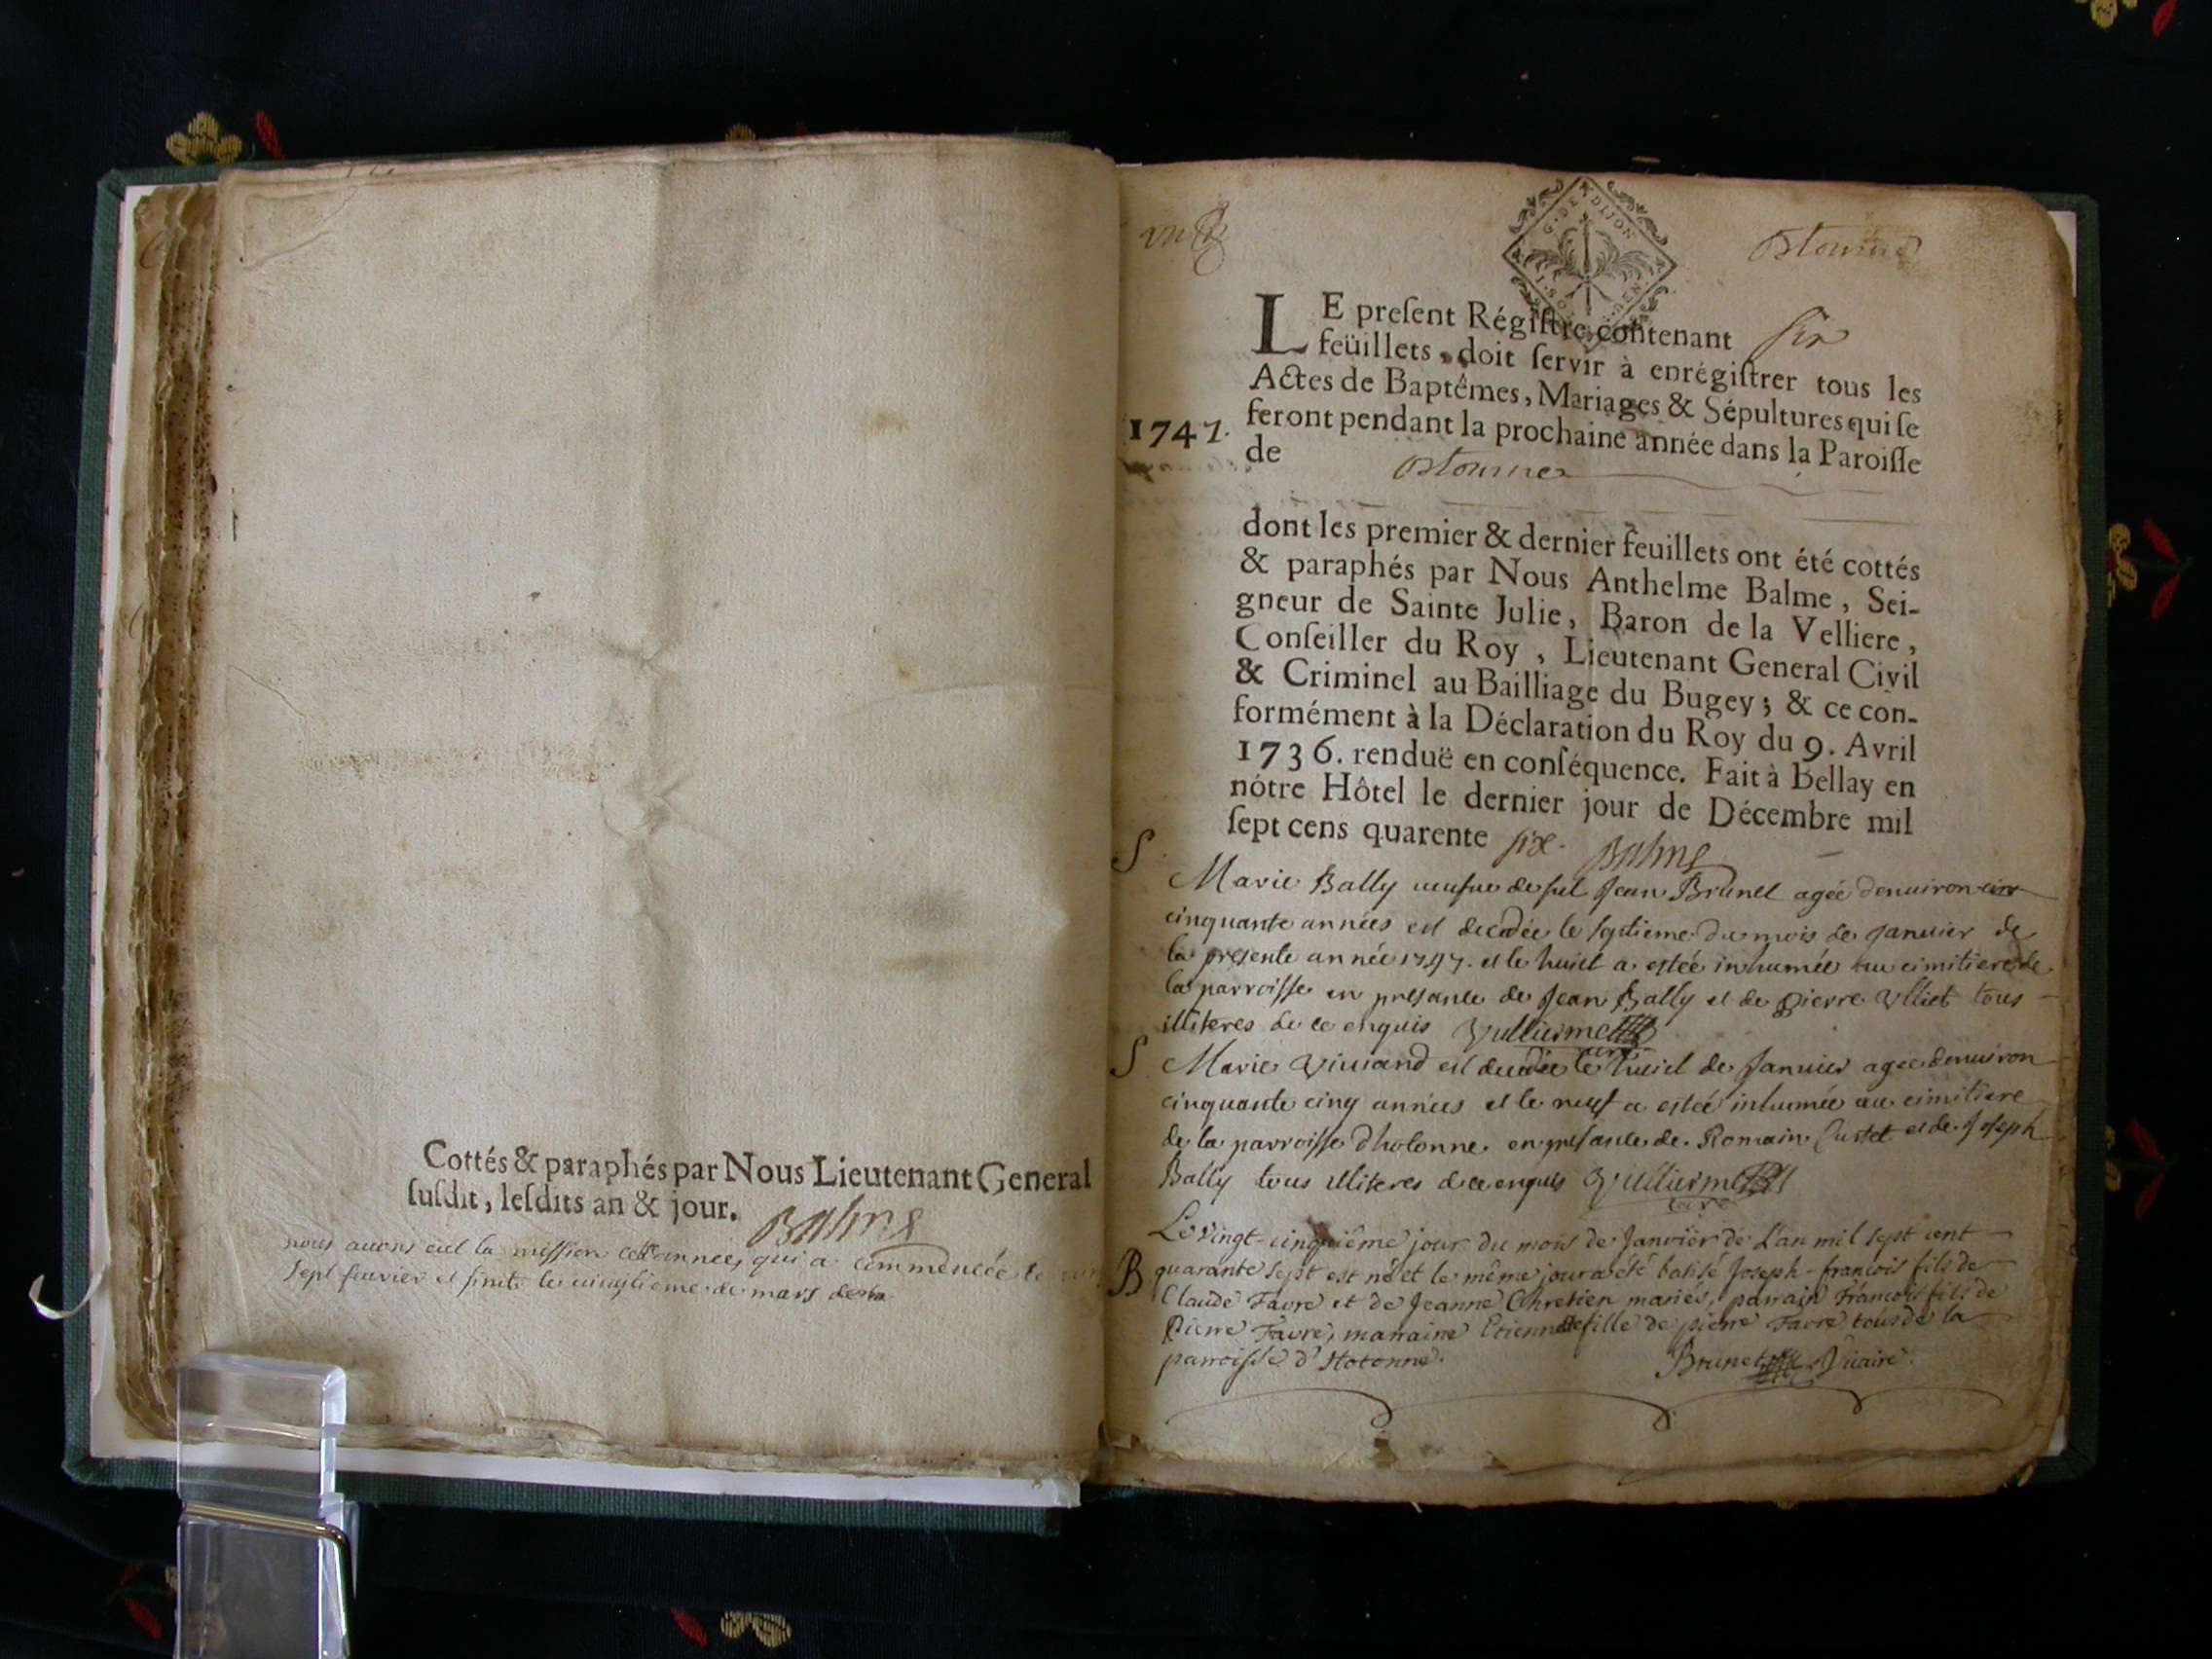 Cottés & paraphés par Nous Lieutenant General
ſuſdit, leſdits an & jour. Balme
nous auons eut la mission cette année, qui a commencée le
sept feurier et finite le uingtieme de mars
G. DE DIJON
hotonne
LE preſent Régiſtre contenant six
feüillets, doit ſervir à enrégiſtrer tous les
Actes de Baptêmes, Mariages & Sépultures qui ſe
1747. feront pendant la prochaine année dans la Paroiſſe
de hotonne
dont les premier & dernier feuillets ont été cottés
& paraphés par Nous Anthelme Balme, Sei-
gneur de Sainte Julie, Baron de la Velliere,
Conſeiller du Roy, Lieutenant General Civil
& Criminel au Bailliage du Bugey; & ce con-
formément à la Déclaration du Roy du 9. Avril
1736. renduë en conſéquence. Fait à Bellay en
nôtre Hôtel le dernier jour de Décembre mil
ſept cens quarente six. Balme
S Marie Bally ueufue de fut Jean Brunet agée denuiron
cinquante années est decedée le septieme du mois de januier de
la presente année 1747. et le huict a estée inhumée au cimitiere de
la parroisse en presance de Jean Bally et de pierre Vlliet tous
illiteres de ce enquis Vulliermet curé
S Marie Viuiand est decedée le huict de januier agee denuiron
cinquante cinq années et le neuf a estée inhumée au cimitiere
de la parroisse dhotonne en presance de Romain Custet et de Joseph
Bally tous illiteres de ce enquis Vulliermet curé
Le vingt-cinquième jour du mois de Janvier de L'an mil sept cent
B quarante sept est né et le même jour a été batisé Joseph-francois fils de
Claude Favre et de Jeanne Chretien mariés, parrain Francois fils de
Pierre Favre, marraine Etiennette fille de pierre Favre tous de la
parroisse d'Hotonne. Brunet Vicaire.